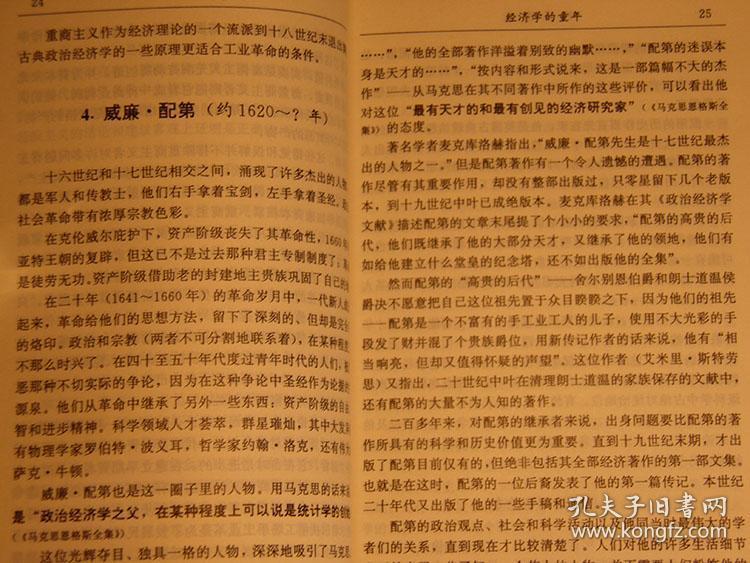 24
重商主义作为经济理论的一个流派到十八世纪末退出
古典政治经济学的一些原理更适合工业革命的条件。
4. 威廉·配第（约1620～？年）
十六世纪和十七世纪相交之间，涌现了许多杰出的人物
都是军人和传教士，他们右手拿着宝剑，左手拿着圣经，
社会革命带有浓厚宗教色彩。
在克伦威尔庇护下，资产阶级丧失了其革命性，1660年
亚特王朝的复辟，但这已不是过去那种君主专制制度了；
是徒劳无功。资产阶级借助老的封建地主贵族巩固了自己的
在二十年（1641～1660年）的革命岁月中，一代新人成
起来，革命给他们的思想方法，留下了深刻的、但却是完全
的烙印。政治和宗教（两者不可分割地联系着），在某种程度
不那么时兴了。在四十至五十年代度过青年时代的人们，
恶那种不切实际的争论，因为在这种争论中圣经作为论据的
源泉。他们从革命中继承了另外一些东西：资产阶级的自
智和进步精神。科学领域人才荟萃，群星璀灿，其中大发
有物理学家罗伯特·波义耳，哲学家约翰·洛克，还有伟
萨克·牛顿。
威廉·配第也是这一圈子里的人物。用马克思的话来
是“政治经济学之父，在某种程度上可以说是统计学的创
（《马克思恩格斯全集》）
这位光辉夺目、独具一格的人物，深深地吸引了马克
经济学的童年
25
……”，“他的全部著作洋溢着别致的幽默……”，“配第的迷误本
身是天才的……”，“按内容和形式说来，这是一部篇幅不大的杰
作”——从马克思在其不同著作中所作的这些评价，可以看出他
对这位“最有天才的和最有创见的经济研究家”（《马克思恩格斯全
集》）的态度。
著名学者麦克库洛赫指出，“威廉·配第先生是十七世纪最杰
出的人物之一。”但是配第著作有一个令人遗憾的遭遇。配第的著
作尽管有其重要作用，却没有整部出版过，只零星留下几个老版
本，到十九世纪中叶已成绝版本。麦克库洛赫在其《政治经济学
文献》描述配第的文章末尾提了个小小的要求，“配第的高贵的后
代，他们既继承了他的大部分天才，又继承了他的领地，他们有
如给他建立什么堂皇的纪念塔，还不如出版他的全集”。
然而配第的“高贵的后代”——舍尔别恩伯爵和朗士道温侯
爵决不愿意把自己这位祖先置于众目睽睽之下，因为他们的祖先
——配第是一个不富有的手工业工人的儿子，使用不大光彩的手
段发了财并混了个贵族爵位，用新传记作者的话来说，他有“相
当响亮，但却又值得怀疑的声望”。这位作者（艾米里·斯特劳
思）又指出，二十世纪中叶在清理朗士道温的家族保存的文献中，
还有配第的大量不为人知的著作。
二百多年来，对配第的继承者来说，出身问题要比配第的著
作所具有的科学和历史价值更为重要。直到十九世纪末期，才出
版了配第目前仅有的，但绝非包括其全部经济著作的第一部文集。
也就是在这时，配第的一位后裔发表了他的第一篇传记。本世纪
二十年代又出版了他的一些手稿和
配第的政治观点、社会和科学活动以及他同当时最伟大的学
者们的关系，直到现在才比较清楚了。人们对他的许多生活细节
孔夫子旧书网
www.kongfz.com